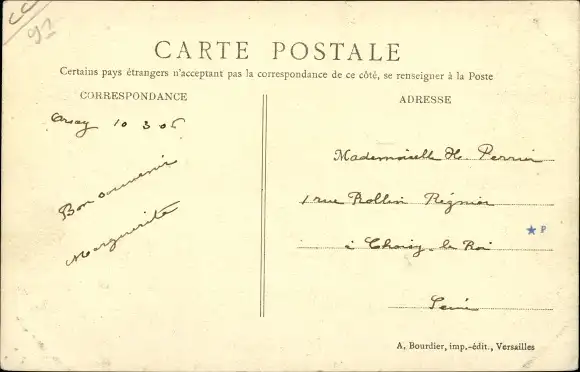 CC
92
CARTE POSTALE
Certains pays étrangers n'acceptant pas la correspondance de ce côté, se renseigner à la Poste
CORRESPONDANCE
Orsay 10 3 05
Bon souvenir
Marguerite
ADRESSE
Mademoiselle H. Perrier
1 rue Rollin Régnier
à Choisy-le-Roi
P
Seine
A. Bourdier, imp.-édit., Versailles